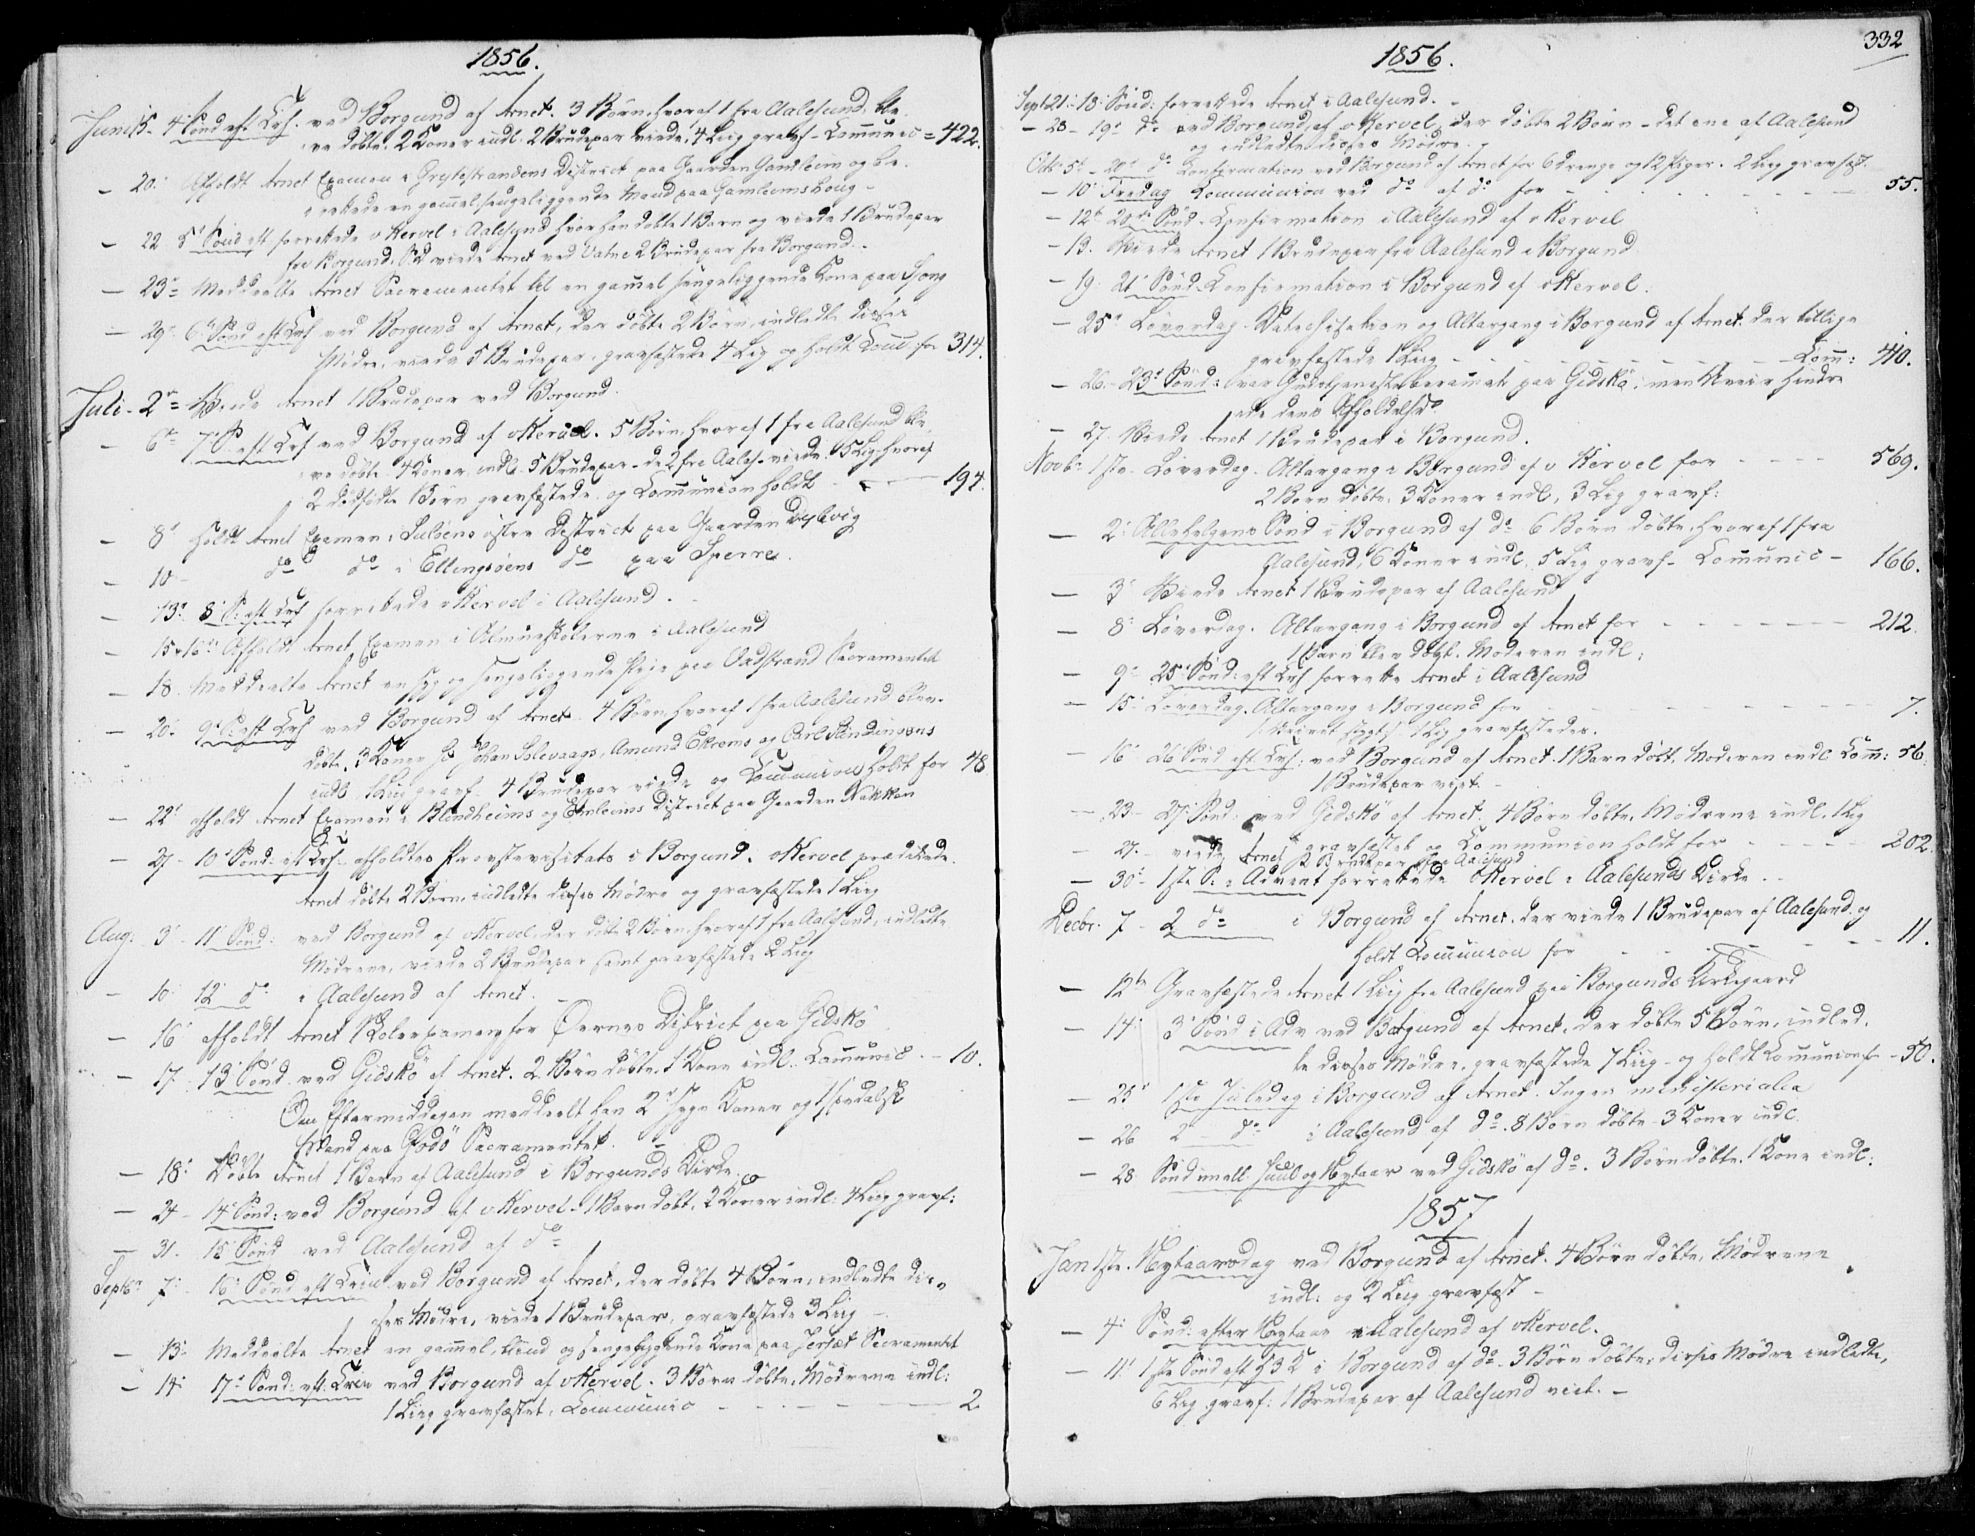 1856.
Juni 15. 4 Sönd eft Tref. ved Borgund af Arnet. 3 Börn, hvoraf 1 fra Aalesund, ble
ve döbte. 2 Koner indl. 2 Brudepar viede, 4 Liig gravf. Communic = 422.
— 20. Afholdt Arnet Examen i Grytestrandens District paa Gaarden Gamlem og be
rettede en gammel sengeliggende Mand paa Gamlems houg
— 22 5t Sönd eft forrettede v Kervel i Aalesund hvor han döbte 1 Barn og viede 1 Brudepar
fra Borgund. viede Arnet ved Vatne 2 Brudepar fra Borgund.
— 23 = Meddeelte Arnet Sacramentet til en gammel sengeliggende Kone paa
— 29. 6t Sönd eft Tref ved Borgund af Arnet, der döbte 2 Börn, indledte disses
Mödre, viede 5 Brudepar, gravfæstede 4 Lig og holdt Com: for 314.
Juli - 2 = Viede Arnet 1 Brudepar ved Borgund.
— 6t 7 S. eft Tref ved Borgund af v Kervel. 5 Börn, hvoraf 1 fra Aalesund ble
ve döbte. 4 Koner indl. 5 Brudepar - de 2 fra Aales. viede. 5 Lig, hvoraf
2 dödfödte Börn gravfæstede og Communion holdt - — 194.
— 8t Holdt Arnet Examen i Sulöens östre District paa Gaarden
— 10 - do do i Ellingsöens do paa Sperre.
— 13. 8 S. eft Tref forrettede v Kervel i Aalesund.
— 15 - 16 Afholdt Arnet Examen i Almueskolerne i Aalesund
— 18. Meddeelte Arnet en syg og sengeliggende Pige paa Vadstrand Sacramentet
— 20. 9 S. eft Tref ved Borgund af Arnet. 4 Börn, hvoraf 1 fra Aalesund blev.
döbte. 3 Koner Johan Slevaags, Amund Ekrems og Carl
indl. 1 Lig gravf. 4 Brudepar viede og Communion holdt for 48
— 22t afholdt Arnet Examen i Blindheims og Emlems District paa Gaarden Nakken
— 27 - 10 Sönd. eft Tref - afholdtes Provstevisitats i Borgund. v Kervel prædikede.
Arnet döbte 2 Börn, indledte disses Mödre og gravfæstede 1 Liig
Aug: 3t - 11 Sönd: ved Borgund af v Kervel, der döbte 2 Börn, hvoraf 1 fra Aalesund, indledte
Mödrene, viede 2 Brudepar samt gravfæstede 2 Liig
— 10. 12 do i Aalesund af Arnet.
— 16 afholdt Arnet Skoleexamen for Öernes District paa Gidskö
— 17 13 Sönd ved Gidskö af Arnet. 2 Börn döbte, 1 Kone indl. Communic - 10.
Om Eftermiddagen meddeelte han 2 syge Koner og 1
Mand paa Godö Sacramentet.
— 18. Döbte Arnet 1 Barn af Aalesund i Borgunds Kirke.
— 24 - 14 Sönd: ved Borgund af v Kervel - 1 Barn döbt. 2 Koner indl: 4 Liig gravf:
— 31. 15 Sönd ved Aalesund af do
Septbr 7. 16 Sönd eft Trin ved Borgund af Arnet, der döbte 4 Börn, indledte dis=
ses Mödre, viede 1 Brudepar, gravfæstede 3 Liig
— 13. Meddeelte Arnet en gammel, blind og sengeliggende Kone paa Sacramentet
— 14 17 Sönd: eft Trin ved Borgund af v Kervel. 3 Börn döbte, Mödrene indl:
1 Liig gravfæstet, Communic - - - - 2
1856.
332
Sept 21. 18. Sönd: forrettede Arnet i Aalesund.
— 28 - 19 do ved Borgund af v Kervel, der döbte 2 Börn - det ene af Aalesund
og indledte disses Mödre.
Octr. 5t - 20 do Confirmation ved Borgund af Arnet for 6 drenge og 12 piger. 2 Liig gravfæst.
— 10 Fredag Communion ved do af do for - - - - 55.
— 12t Sönd - Confirmation i Aalesund af v Kervel
— 13. Viede Arnet 1 Brudepar fra Aalesund i Borgund.
— 19. 21 Sönd - Confirmation i Borgund af v Kervel.
— 25 Löverdag - Catechisation og Altargang i Borgund af Arnet der tillige
gravfæstede 1 Liig - - - - - - Com: 40.
— 26 - 23t Sönd: var Gudstjeneste berammet paa Gidskö, men Uveir hindre
ede dens Afholdelse
— 27. Viede Arnet 1 Brudepar i Borgund.
Novbr 1ste - Löverdag. Altargang i Borgund af v Kervel for - - - - 569.
2 Börn döbte, 3 Koner indl, 3 Lig gravf:
— 2. Allehelgens Sönd i Borgund af do 6 Börn döbte, hvoraf 1 fra
Aalesund, 6 Koner indl, 5 Lig gravf - Communic - 166.
— 3 Viede Arnet 1 Brudepar af Aalesund
— 8 Löverdag. Altargang i Borgund af Arnet for - - - - - 212.
1 Barn blev döbt. Moderen indl:
— 9 25 Sönd: eft Tref forrette Arnet i Aalesund
— 15. Löverdag. Altargang i Borgund for - - - - - 7.
1 Lig gravfæstedes.
— 16 26 Sönd eft Tref: ved Borgund af Arnet. 1 Barn döbt, Moderen indl. Com: 56.
1 Brudepar viet.
— 23 - 27 Sönd: ved Gidskö af Arnet. 4 Börn döbte, Mödrene indl. 1 Lig
gravfæstet og Communion holdt for - - - - - 202.
— 27. - viede Arnet 2 Brudepar fra Aalesund
— 30 - 1ste S. i Advent forrettede v Kervel i Aalesunds Kirke.
Decbr. 7 - 2 do i Borgund af Arnet. der viede 1 Brudepar af Aalesund og
holdt Communion for - - - - 11.
— 12te Gravfæstede Arnet 1 Liig fra Aalesund paa Borgunds Kirkegaard
— 14. 3 Sönd i Adv ved Borgund af Arnet, der döbte 5 Börn, indled.
te disses Mödre, gravfæstede 7 Liig - og holdt Communion for - 50.
— 25 1ste Juledag i Borgund af Arnet. Ingen ministerialia
— 26 2 - do i Aalesund af do. 8 Börn döbte - 3 Koner indl.
— 28 Sönd mell. Juul og Nytaar ved Gidskö af do. 3 Börn döbte. 1 Kone indl:
1857
Jan 1ste. Nytaarsdag ved Borgund af Arnet. 4 Börn döbte, Mödrene
indl: og 2 Liig gravfæst -
— 4. Sönd: efter Nytaar i Aalesund af v Kervel.
— 11 1ste Sönd eft H 3 K i Borgund af do. 3 Börn döbte, disses Mödre indledte,
6 Lig gravf: 1 Brudepar af Aalesund viet. -